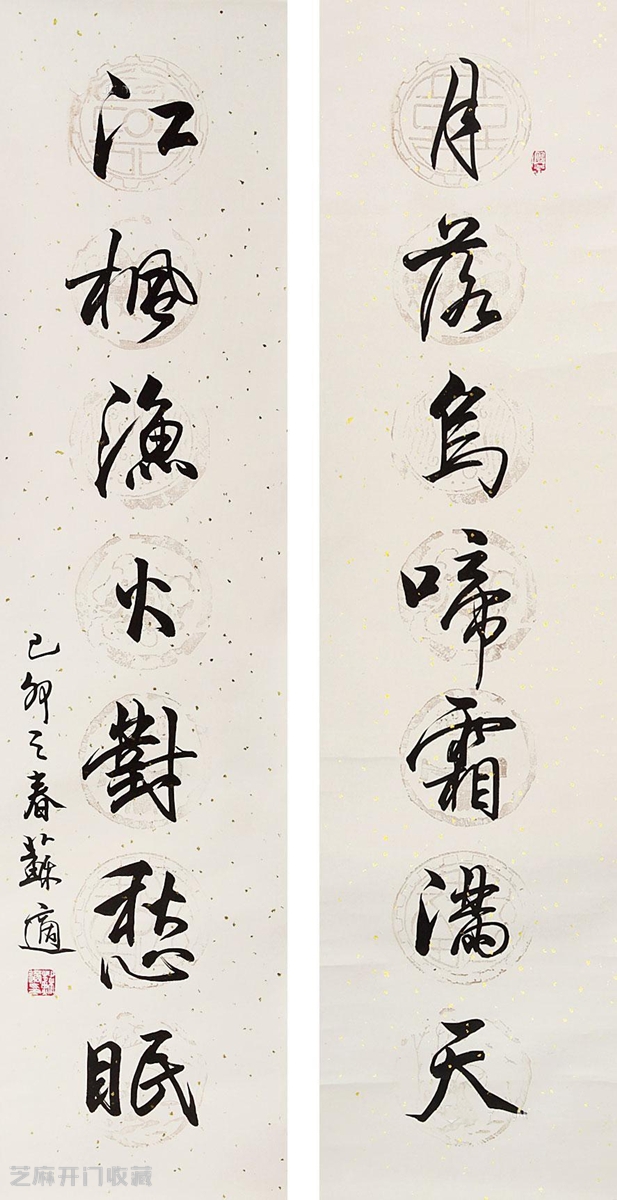 月落烏啼霜滿天
江楓漁火對愁眠
己卯之春蘇適
芝麻开门收藏